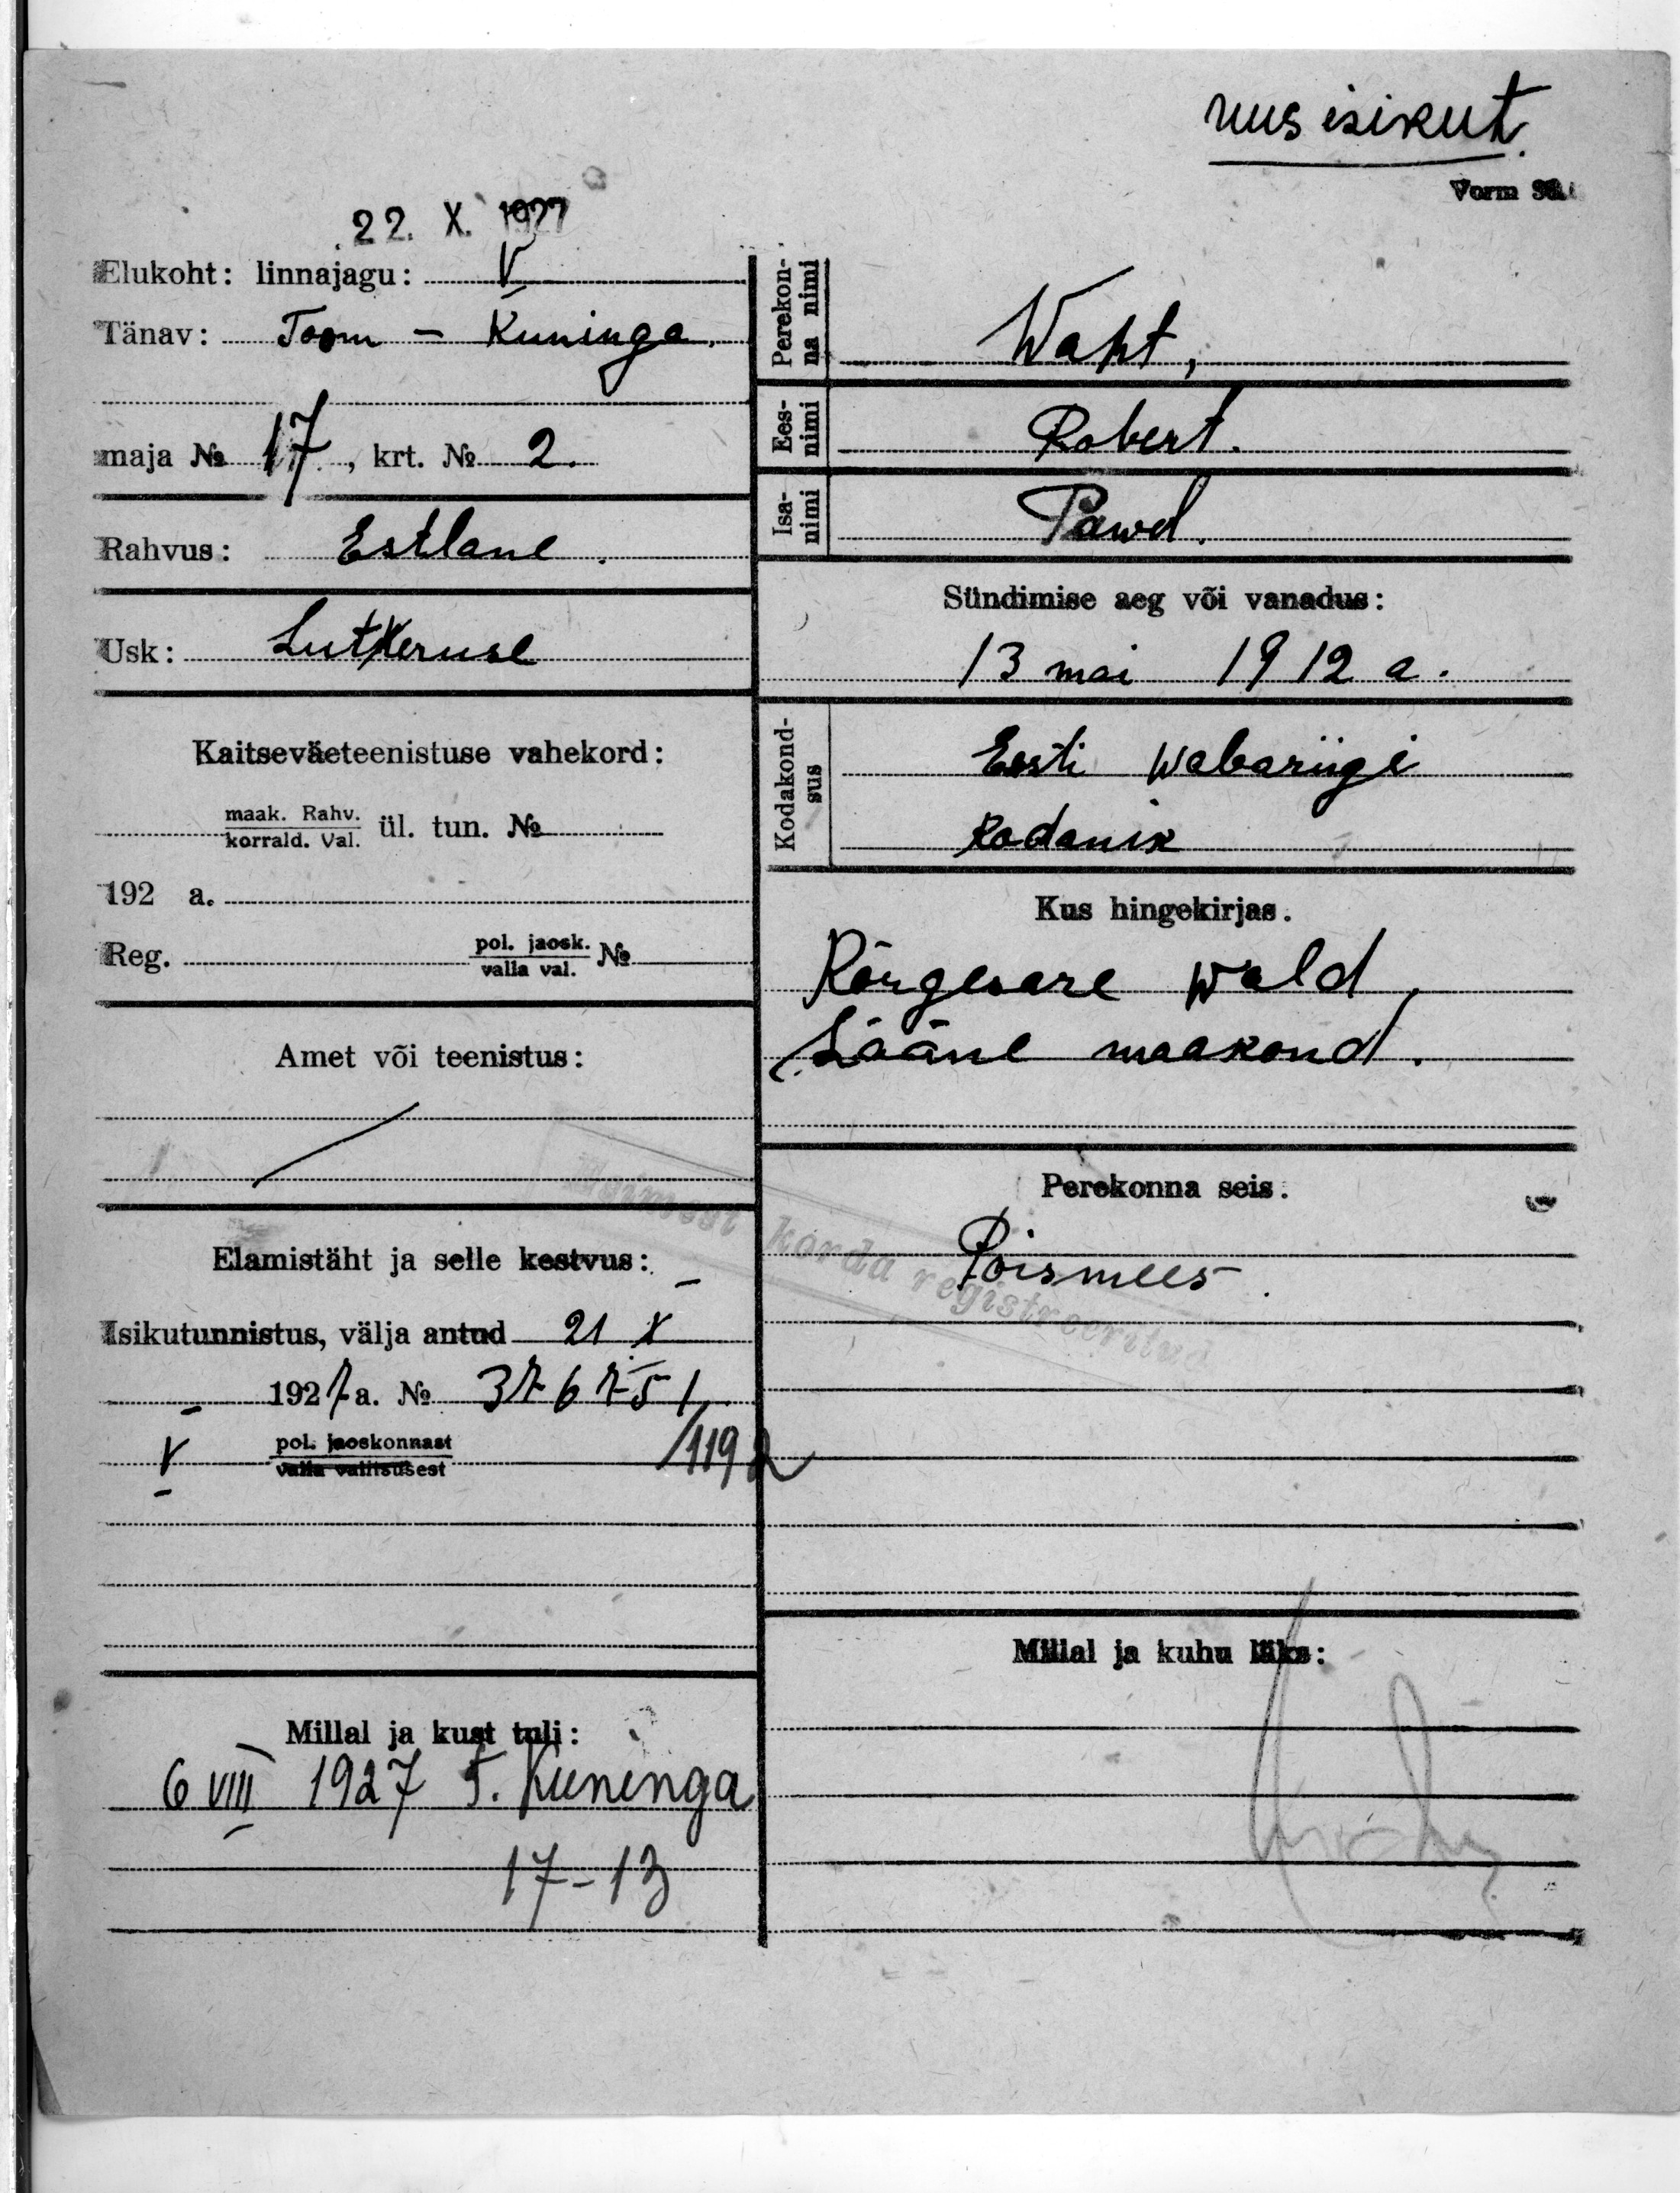 uus isikut.
Vorm
22. X. 1927
Elukoht: linnajagu: V
Tänav: Toom - Kuninga.
maja № 17, krt. № 2.
Rahvus: Estlane.
Usk: Lutheruse
Kaitseväeteenistuse vahekord:
maak. Rahv.
korrald. Val. ül. tun. №
192 a.
Reg. pol. jaosk.
valla val. №
Amet või teenistus:
Elamistäht ja selle kestvus: –
Isikutunnistus, välja antud 21 X
1927 a. № 376751
V pol. jaoskonnast /1192
valla valitsusest
Millal ja kust tuli:
6 VIII 1927 T. Kuninga
17-13
Perekon-
na nimi Waht,
Ees-
nimi Robert.
Isa-
nimi Pawel.
Sündimise aeg või vanadus:
13 mai 1912 a.
Kodakond-
sus Eesti Wabariigi
kodanik
Kus hingekirjas.
Kõrgesare wald,
Lääne maakond.
Perekonna seis.
Poismees.
Esimest korda registreeritud
Millal ja kuhu läks: